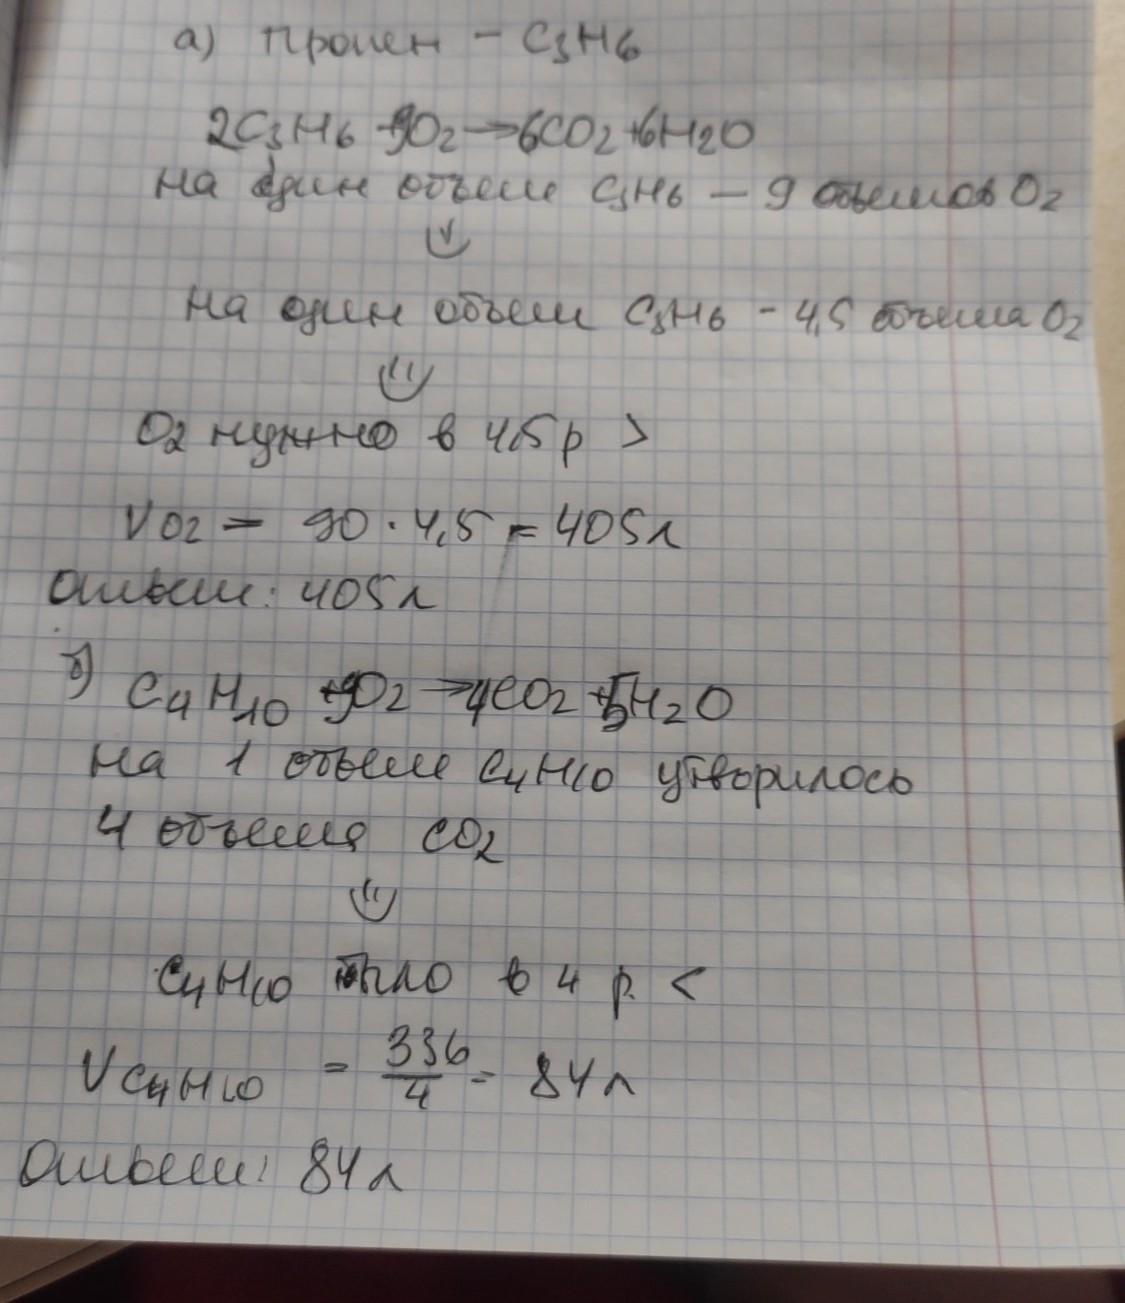 а) пропен - C3H6
2C3H6 + 9O2 → 6CO2 + 6H2O
на один объем C3H6 - 9 объемов O2
на один объем C3H6 - 4,5 объема O2
O2 нужно в 4,5 р >
VO2 = 90 · 4,5 = 405л
Ответ: 405л
б) C4H10 + 9O2 → 4CO2 + 5H2O
на 1 объем C4H10 утворилось
4 объема CO2
C4H10 было в 4 р. <
VC4H10 = 336/4 = 84л
Ответ: 84л